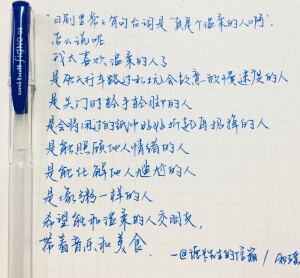 "日剧里常常有句台词是"真是个温柔的人啊".
怎么说呢
我太喜欢温柔的人了
是雨天行车路过水坑会故意放慢速度的人
是关门时轻手轻脚的人
是会将用过的纸巾好好折起再扔掉的人
是能照顾他人情绪的人
是能化解他人尴尬的人
是像粥一样的人
希望能和温柔的人交朋友,
带着音乐和美食.
uni-ball Signo